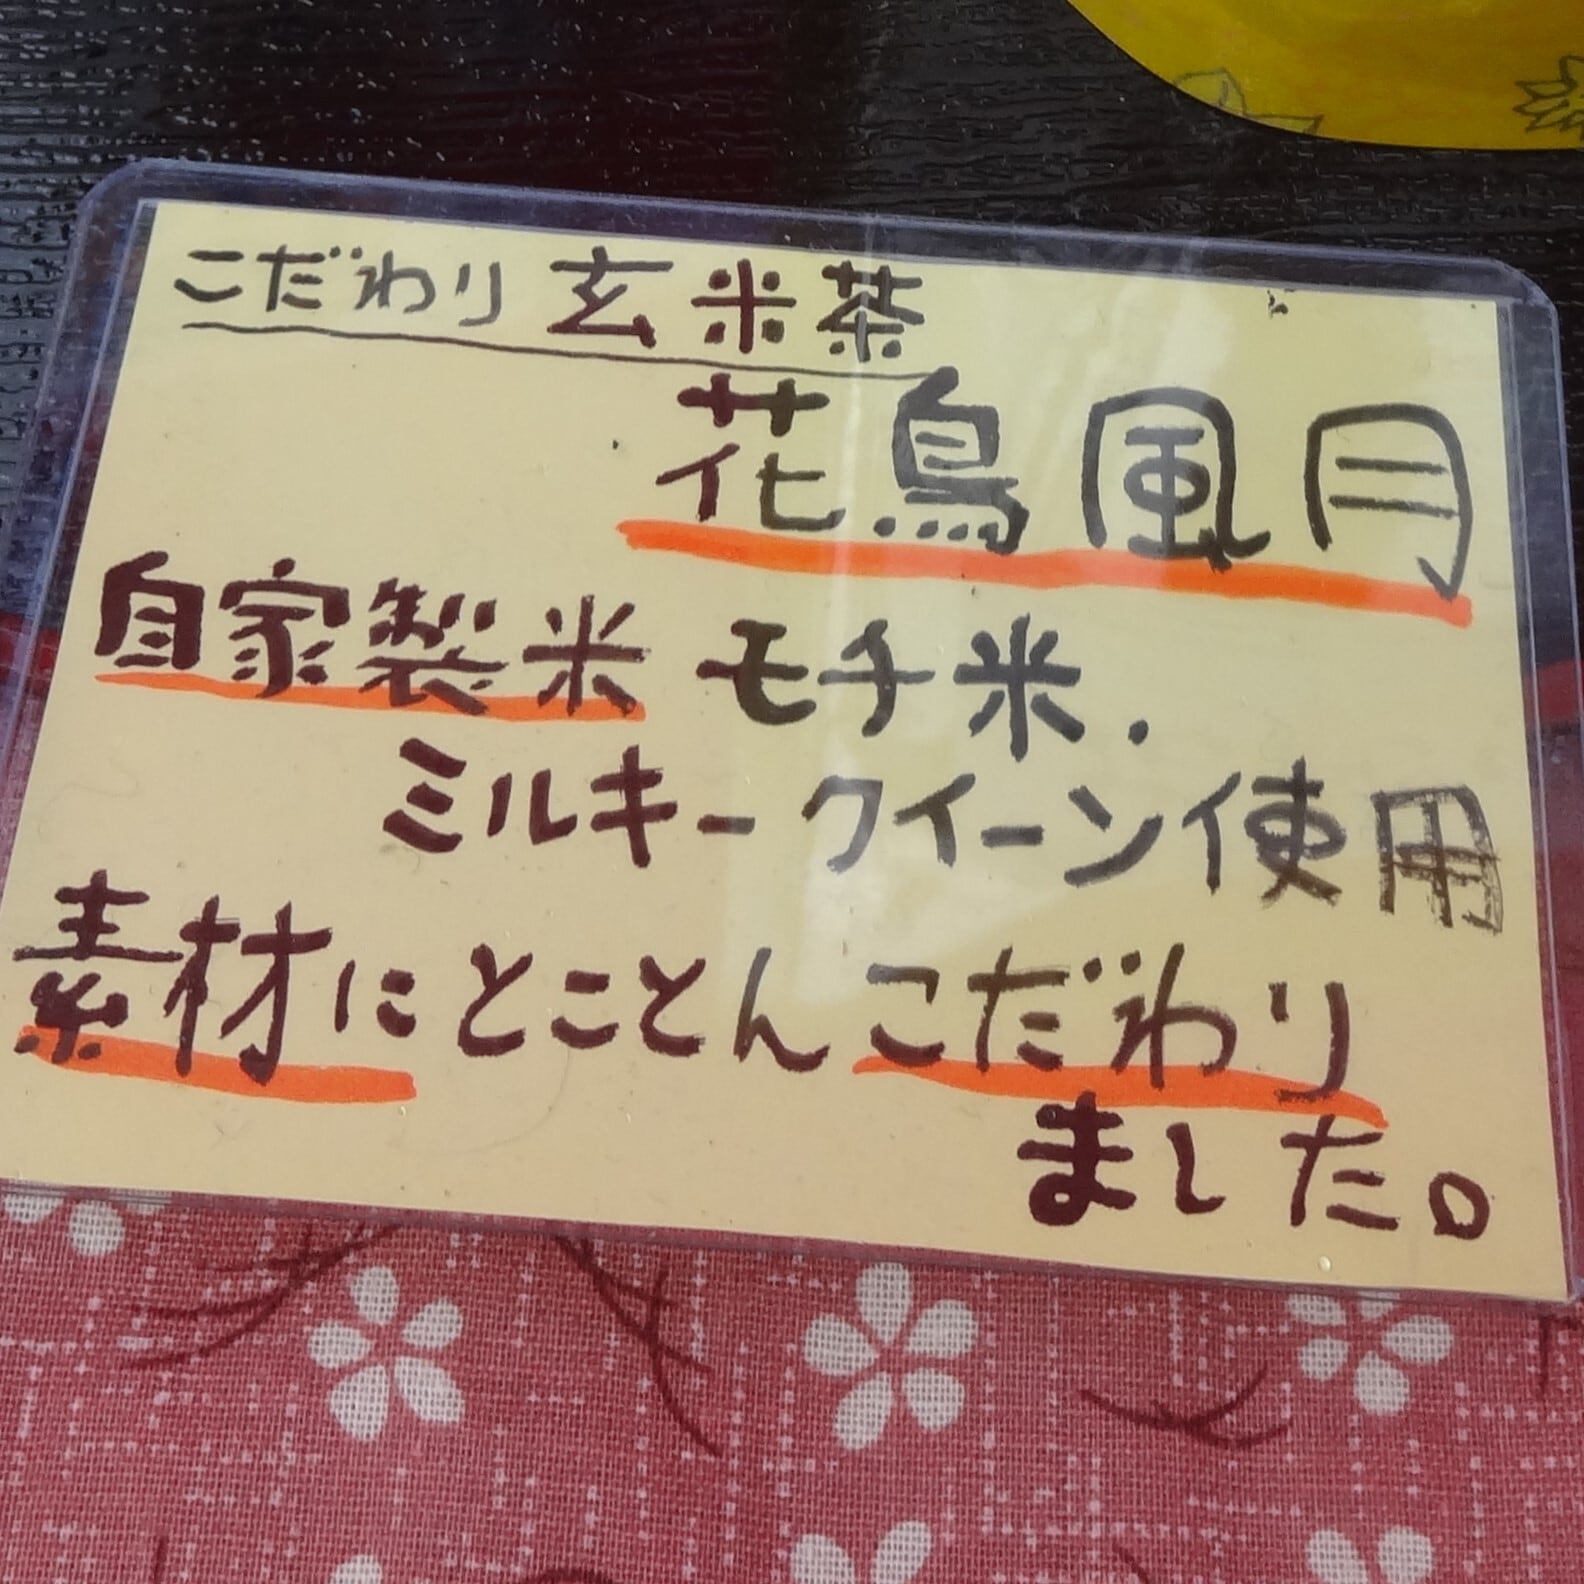 こだわり玄米茶
花鳥風月
自家製米 モチ米.
ミルキークイーン使用
素材にとことんこだわり
ました。